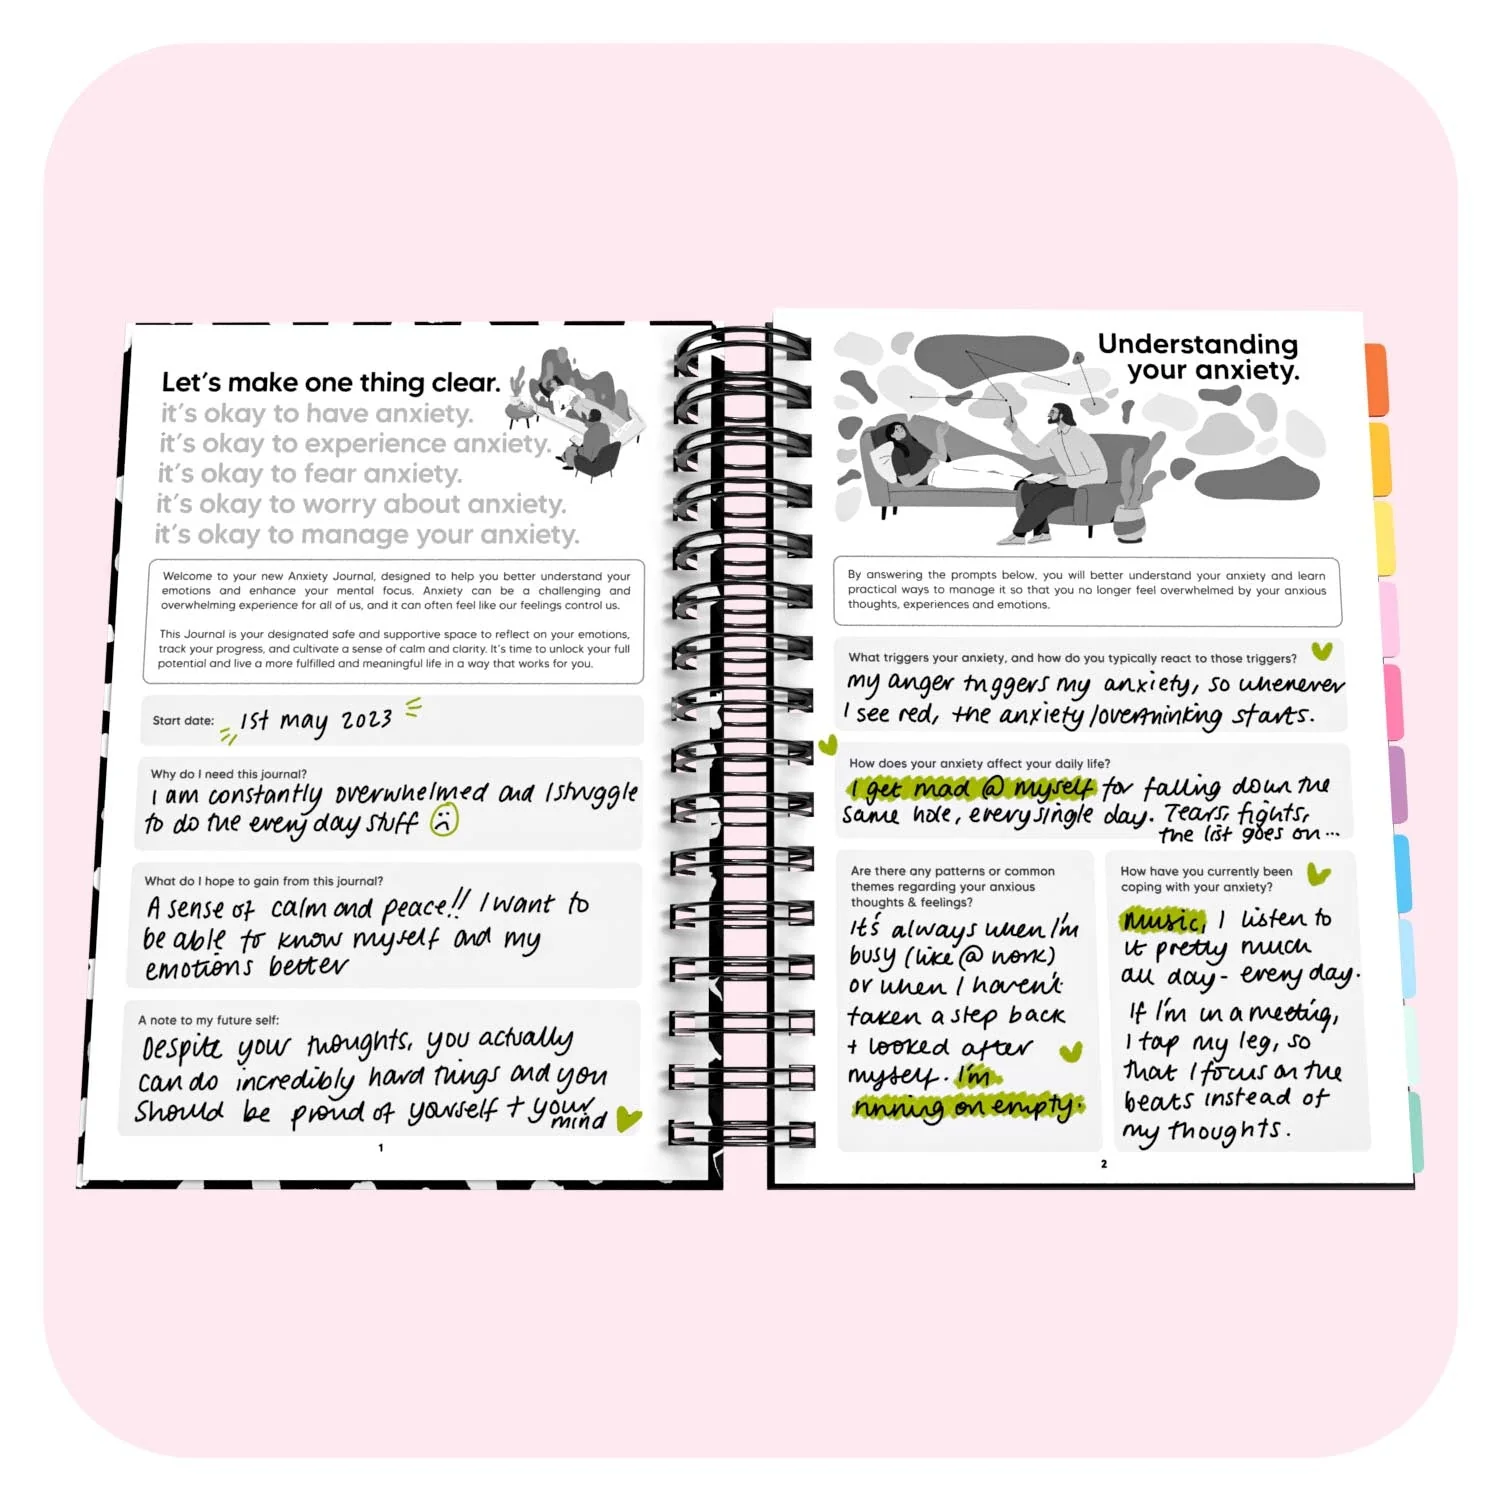 Let's make one thing clear.
it's okay to have anxiety.
it's okay to experience anxiety.
it's okay to fear anxiety.
it's okay to worry about anxiety.
it's okay to manage your anxiety.
Welcome to your new Anxiety Journal, designed to help you better understand your
emotions and enhance your mental focus. Anxiety can be a challenging and
overwhelming experience for all of us, and it can often feel like our feelings control us.
This Journal is your designated safe and supportive space to reflect on your emotions,
track your progress, and cultivate a sense of calm and clarity. It's time to unlock your full
potential and live a more fulfilled and meaningful life in a way that works for you.
Start date: 1st may 2023
Why do I need this journal?
I am constantly overwhelmed and I struggle
to do the every day stuff
What do I hope to gain from this journal?
A sense of calm and peace!! I want to
be able to know myself and my
emotions better
A note to my future self:
Despite your thoughts, you actually
can do incredibly hard things and you
should be proud of yourself + your
mind
1
Understanding
your anxiety.
By answering the prompts below, you will better understand your anxiety and learn
practical ways to manage it so that you no longer feel overwhelmed by your anxious
thoughts, experiences and emotions.
What triggers your anxiety, and how do you typically react to those triggers?
my anger triggers my anxiety, so whenever
I see red, the anxiety/overthinking starts.
How does your anxiety affect your daily life?
I get mad @ myself for falling down the
same hole, every single day. Tears, fights,
the list goes on...
Are there any patterns or common
themes regarding your anxious
thoughts & feelings?
It's always when I'm
busy (like @ work)
or when I haven't
taken a step back
+ looked after
myself. I'm
running on empty.
How have you currently been
coping with your anxiety?
music, I listen to
it pretty much
all day - every day.
If I'm in a meeting,
I tap my leg, so
that I focus on the
beats instead of
my thoughts.
2